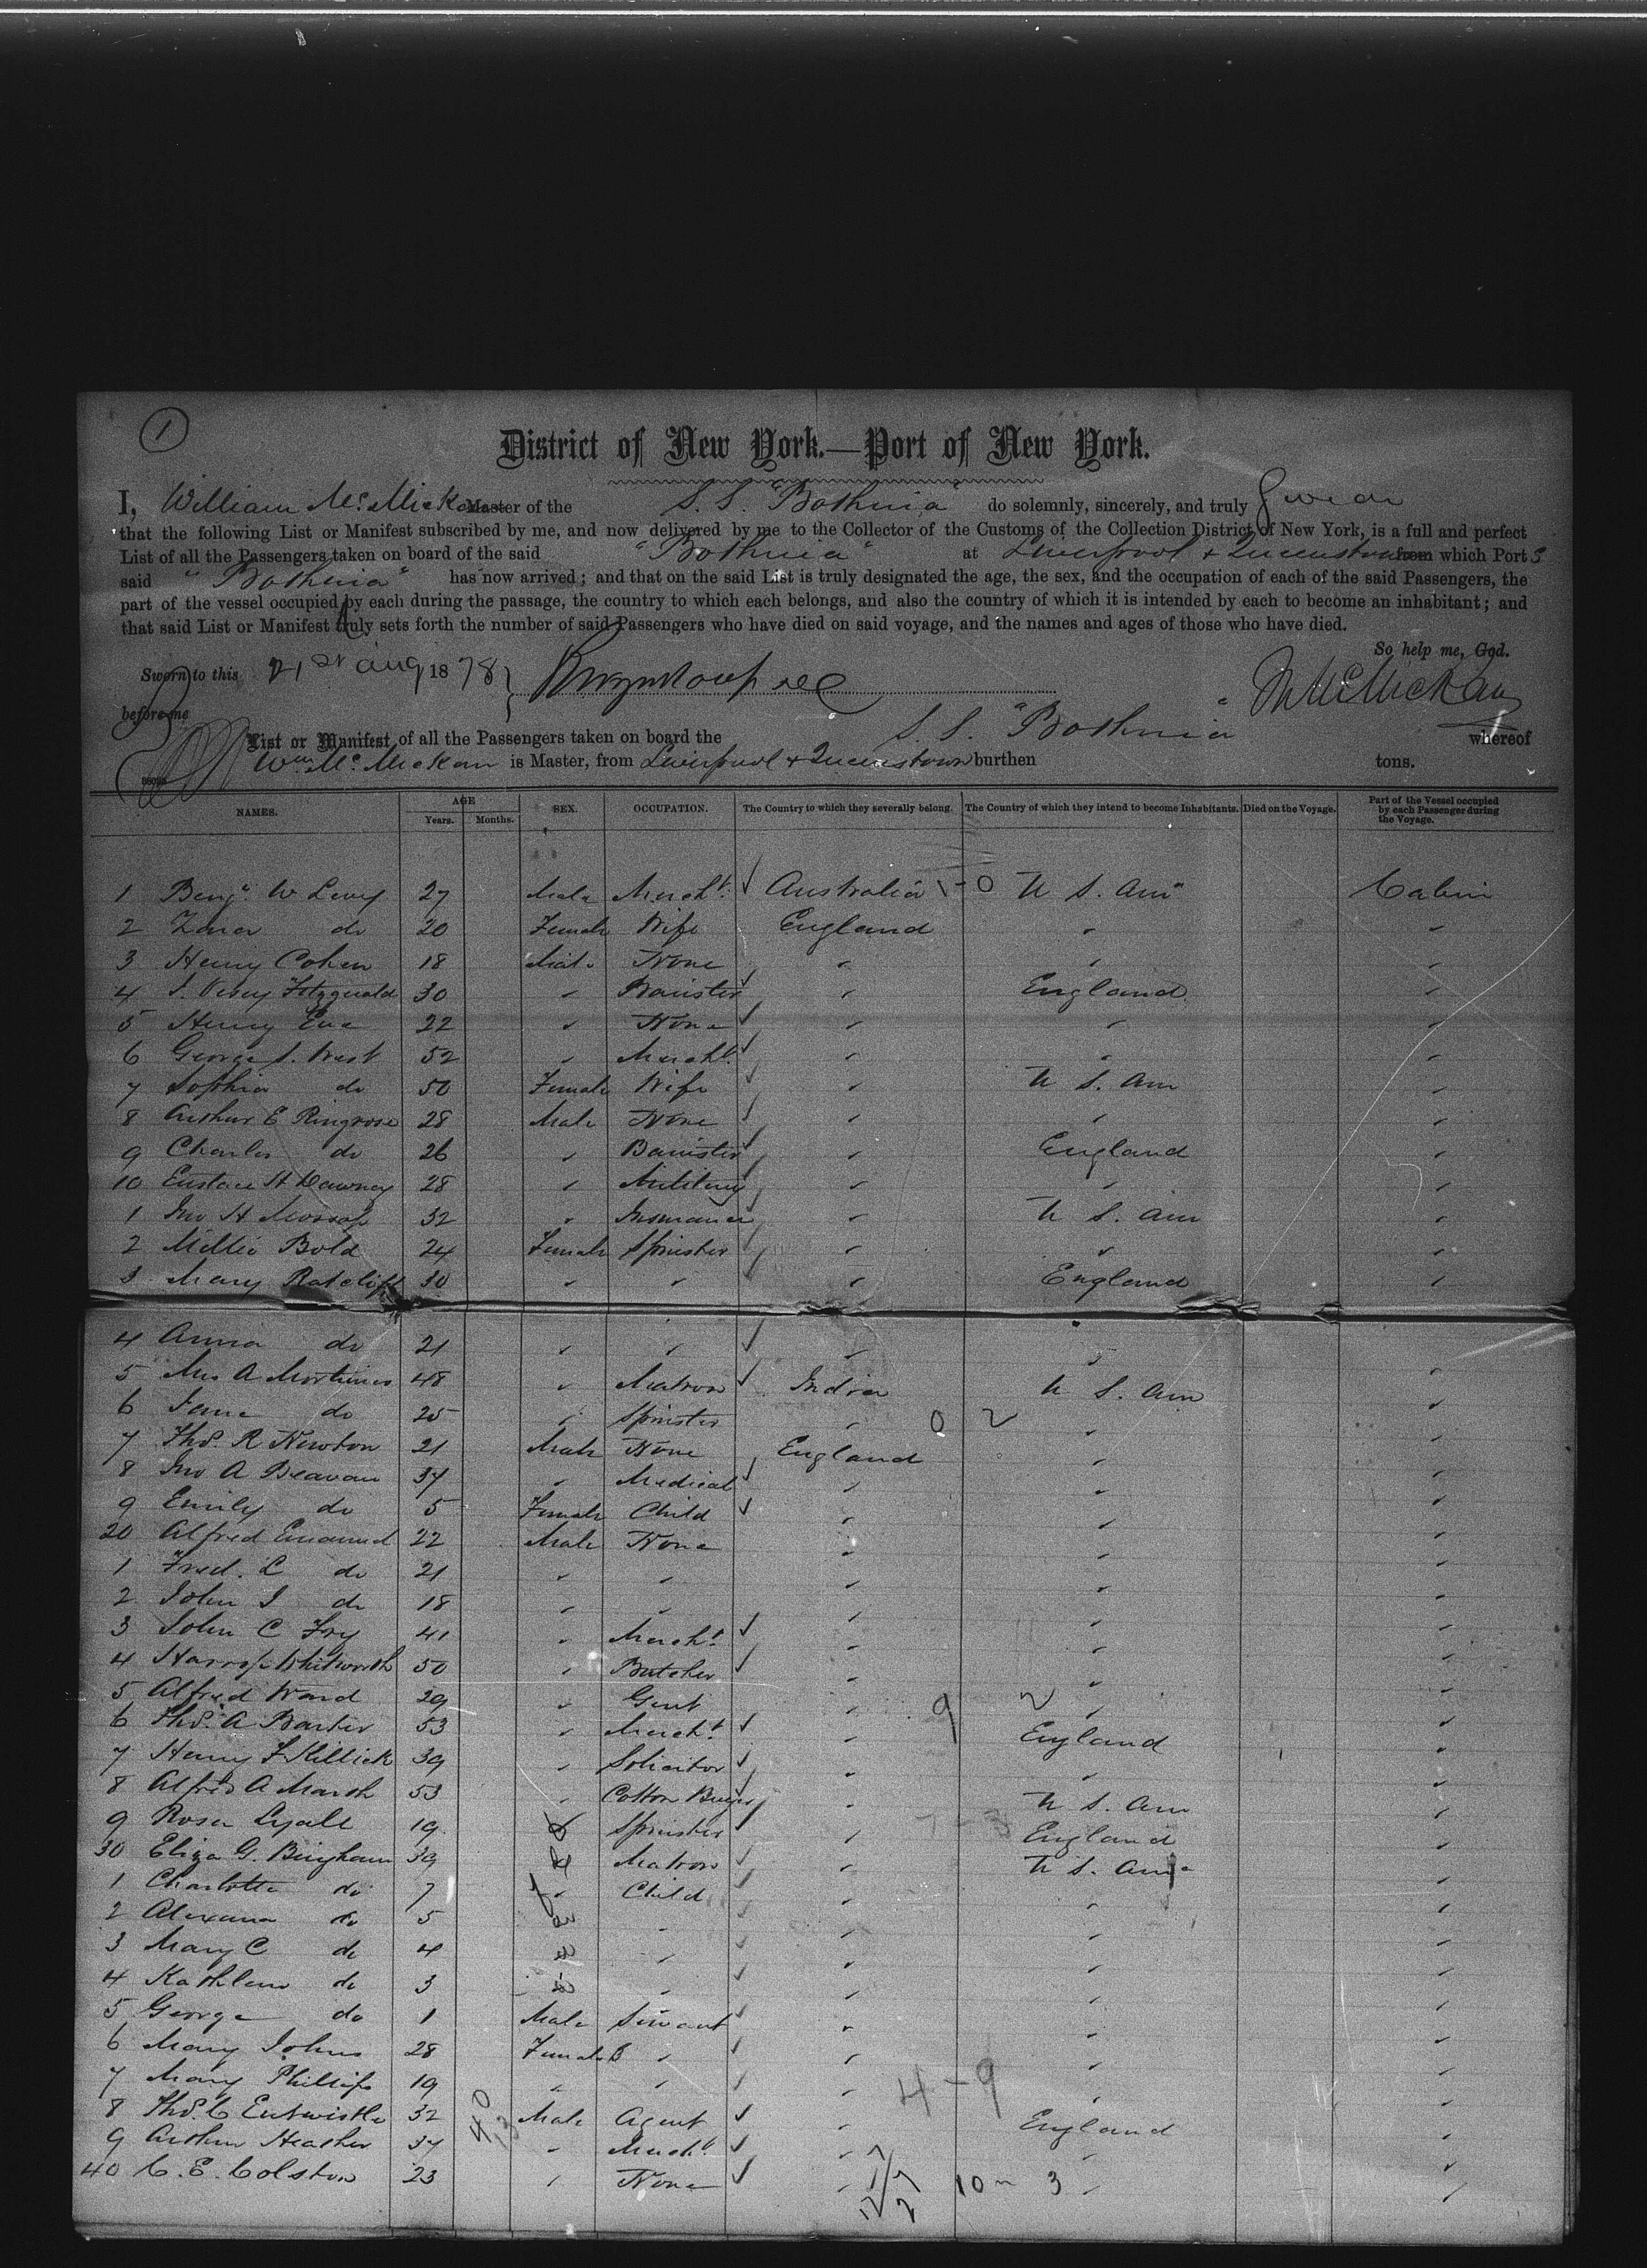 1
District of New York.—Port of New York.
I, William McMickan Master of the S. S. "Bothnia" do solemnly, sincerely, and truly swear
that the following List or Manifest subscribed by me, and now delivered by me to the Collector of the Customs of the Collection District of New York, is a full and perfect
List of all the Passengers taken on board of the said "Bothnia" at Liverpool & Queenstown from which Ports
said "Bothnia" has now arrived; and that on the said List is truly designated the age, the sex, and the occupation of each of the said Passengers, the
part of the vessel occupied by each during the passage, the country to which each belongs, and also the country of which it is intended by each to become an inhabitant; and
that said List or Manifest truly sets forth the number of said Passengers who have died on said voyage, and the names and ages of those who have died.
So help me, God.
Sworn to this 21st Aug 1878 WMcMickan
before me
List or Manifest of all the Passengers taken on board the S. S. "Bothnia" whereof
Wm McMickan is Master, from Liverpool & Queenstown burthen tons.
NAMES. AGE Years. Months. SEX. OCCUPATION. The Country to which they severally belong. The Country of which they intend to become Inhabitants. Died on the Voyage. Part of the Vessel occupied by each Passenger during the Voyage.
1 Benjn W Levy 27 Male Mercht. Australia 1-0 U S. Am Cabin
2 do 20 Female Wife England "
3 Henry Cohen 18 Male None " " "
4 J. Vesey Fitzgerald 30 " Barrister " England "
5 Henry 22 " None " " "
6 George S. West 52 " Mercht. " " "
7 Sophia do 50 Female Wife " U S. Am "
8 Arthur E Ringrose 28 Male None " " "
9 Charles do 26 " Barrister " England "
10 Eustace H Dawnay 28 " Military " " "
1 Jno H Mossop 32 " Insurance " U S. Am "
2 Millie Bold 24 Female Spinster " " "
3 Mary Ratcliff 30 " " " England "
4 Anna do 21 " " " " "
5 Mrs A Mortimer 48 " Matron India U S. Am "
6 Jane do 25 " Spinster " 0 2 " "
7 Thos. R Newton 21 Male None England " "
8 Jno A Beavan 37 " Medical " " "
9 Emily do 5 Female Child " " "
20 Alfred Emanuel 22 Male None " " "
1 Fred. L do 21 " " " " "
2 John J do 18 " " " " "
3 John C Fry 41 " Mercht. " " "
4 Harrop Whitworth 50 " Butcher " " "
5 Alfred Ward 29 " Gent " 9 2 " "
6 Thos. A Barber 53 " Mercht " England "
7 Henry F Killick 39 " Solicitor " " "
8 Alfred A Marsh 53 " Cotton Buyer " U S. Am "
9 Rosa Lyall 19 Spinster " England "
30 Eliza G. Bingham 39 Matron " U S. Am "
1 Charlotte do 7 f Child " " "
2 do 5 " " " "
3 Mary C do 4 " " " "
4 Kathleen do 3 " " " "
5 George do 1 Male Servant " " "
6 Mary Johns 28 Female " " " "
7 Mary Phillips 19 " " " 4-9 " "
8 Thos. C Entwistle 32 Male Agent " England "
9 Arthur Heather 34 " Mercht. " " "
40 C. E. Colston 23 " None " 10-3 " "